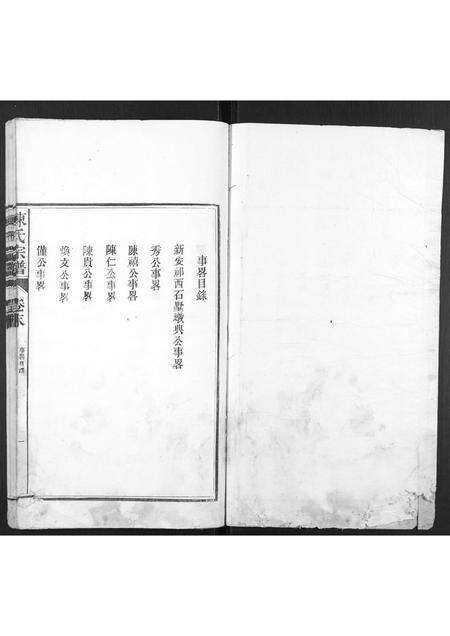 事畧目錄
新安祁西石墅墩典公事畧
秀公事畧
陳禧公事畧
陳仁公事畧
陳貴公事畧
煥文公事畧
僅公事畧
陳氏宗譜
卷末
事畧目錄
一